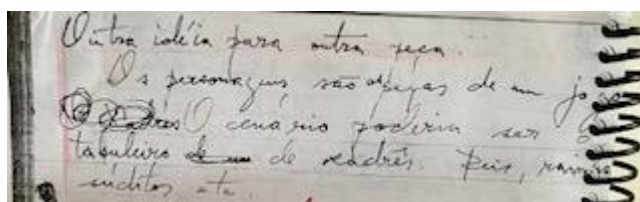 Outra idéia para outra peça..
Os personagens, são as peças de um jogo
O cenário poderia ser o
tabuleiro de um de xadrês. Reis, rainhas
súditos etc...